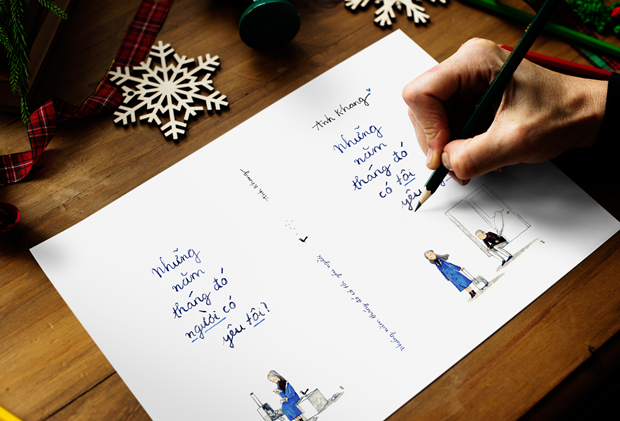 Những
năm
tháng đó
người có
yêu tôi?
Anh Khang
Những năm tháng đó có tôi yêu người
Anh Khang
Những
năm
tháng đó
có tôi
yêu